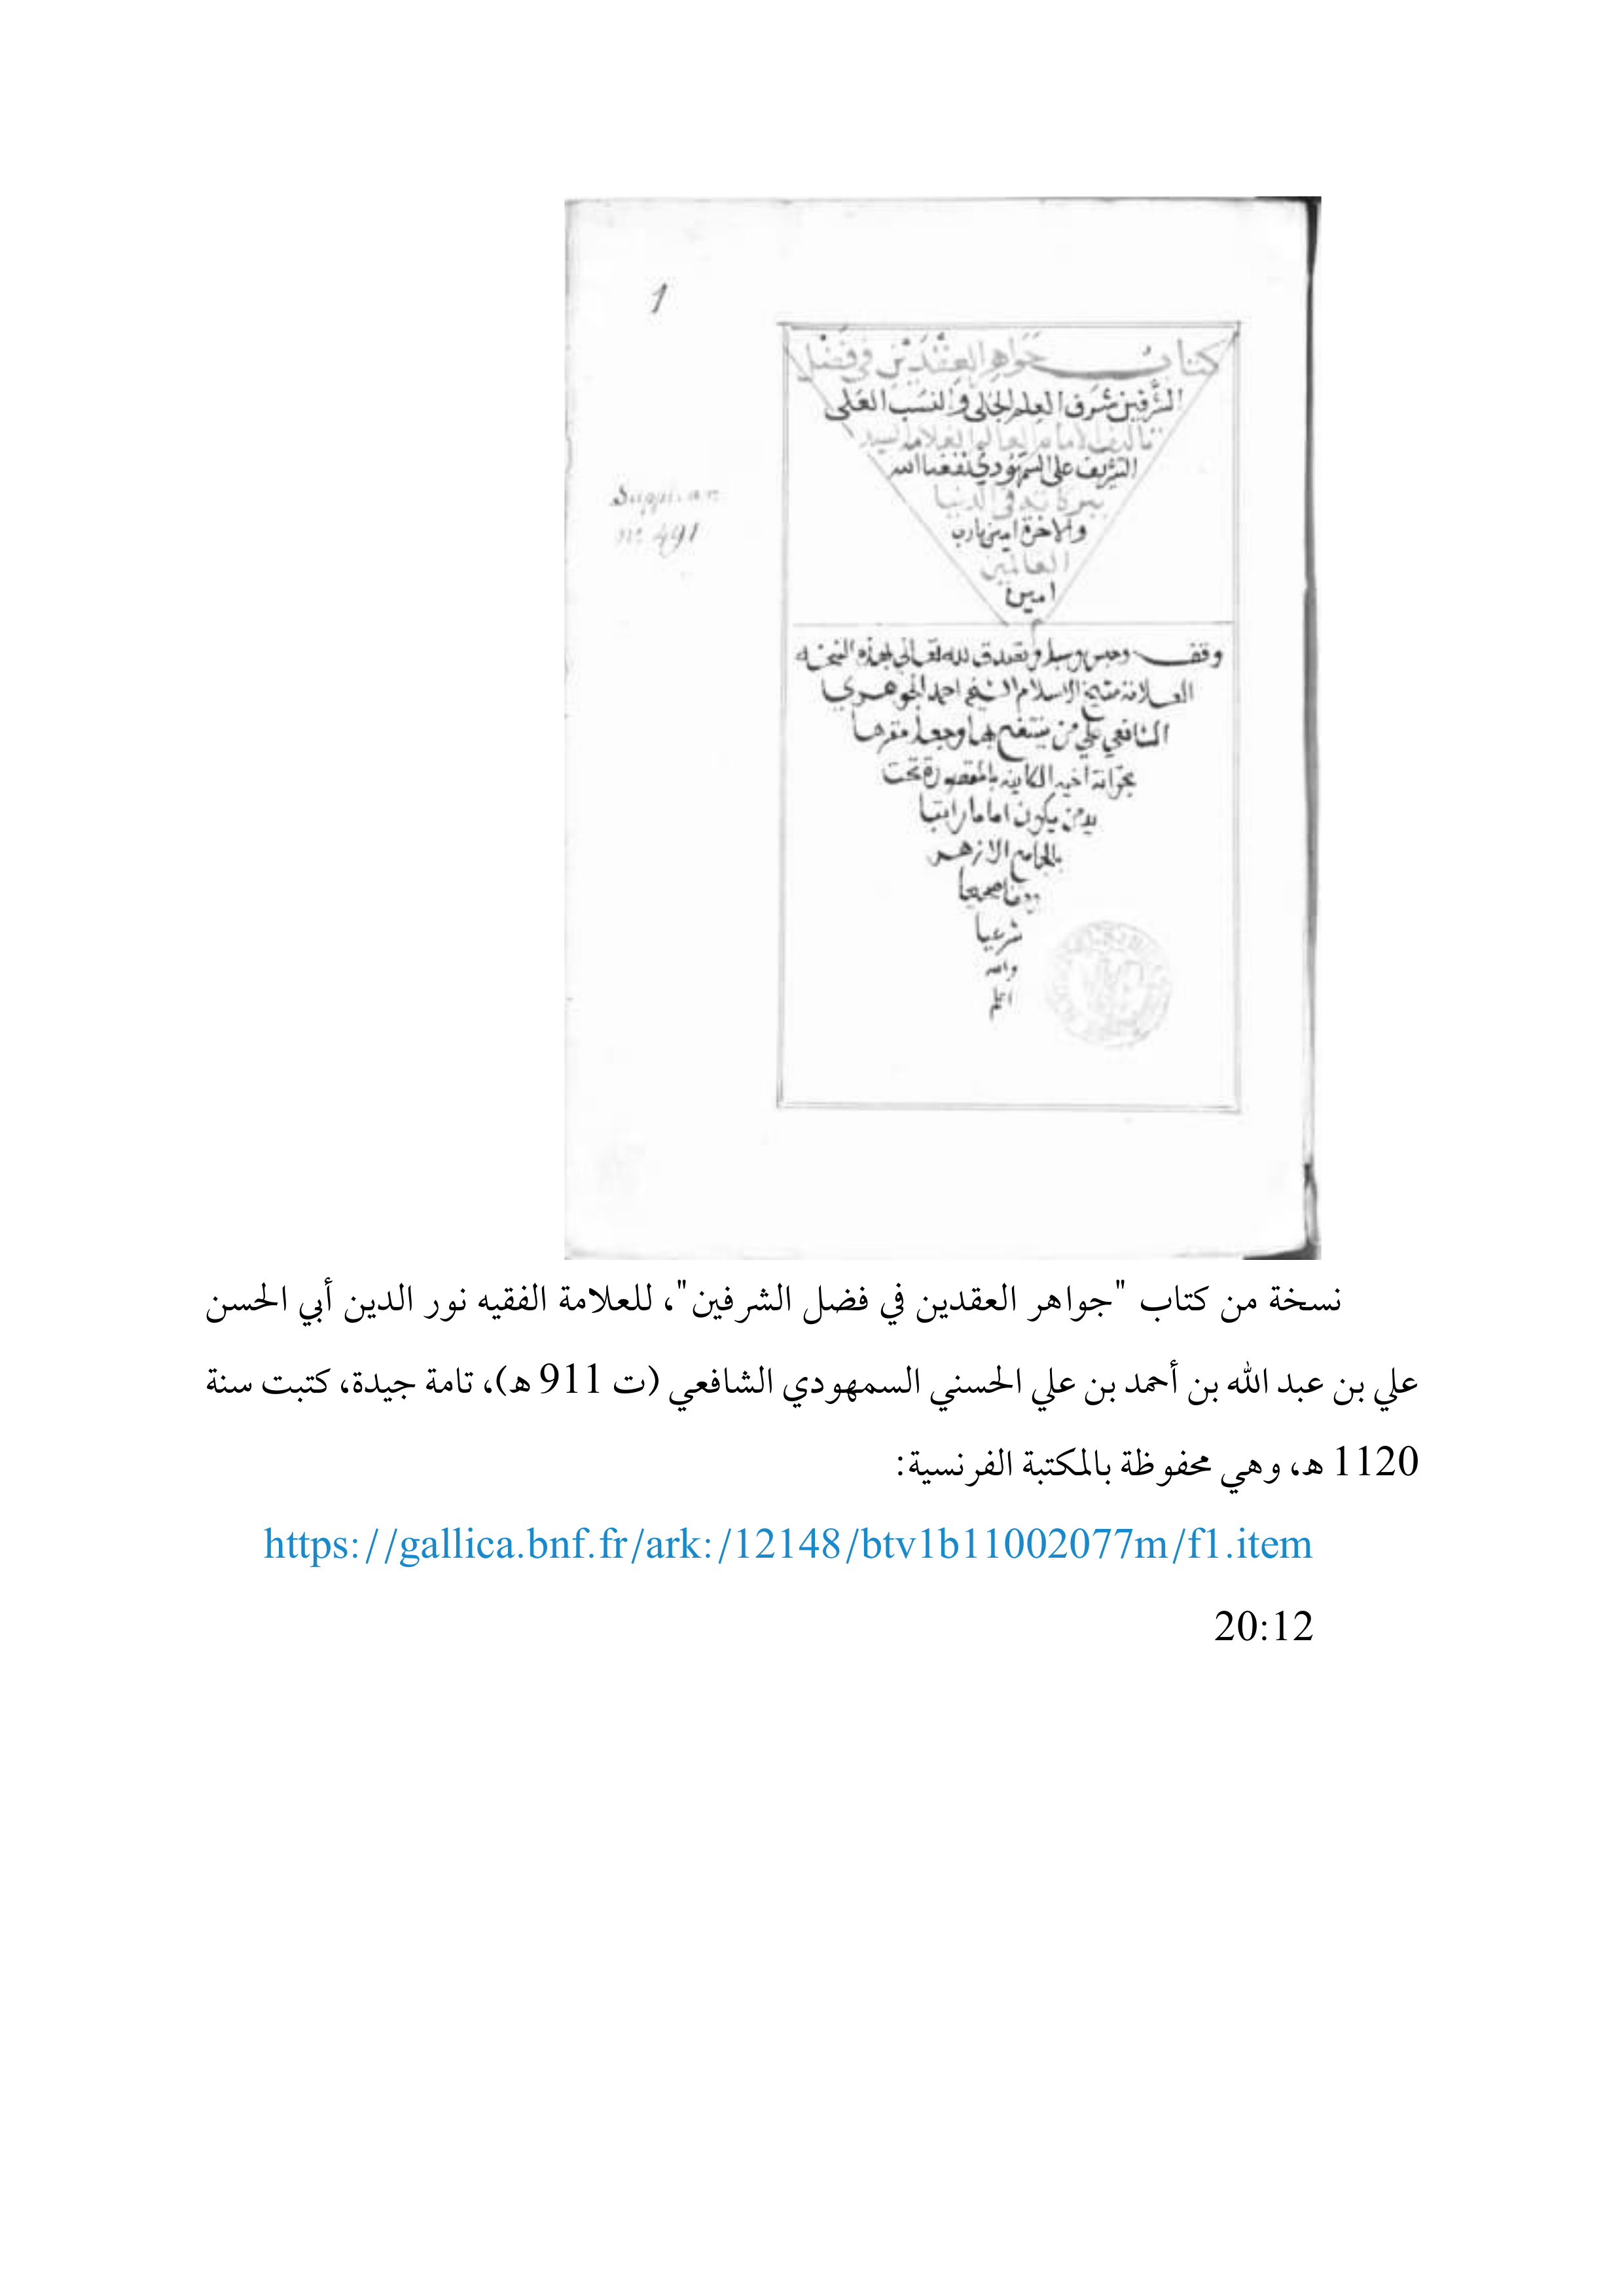 1
كتاب جَواهِر العِقْدَيْن في فَضْل
الشَّرفين شَرَف العِلم الجَلي والنسَب العَلى
تاليف الامام العالم العلامه السيد
الشريف على السمهودي نفعنا الله
ببركاته في الدنيا
والاخرة امين يارب
العالمين
امين
Suppl. ar.
nº 491
وقف وحبس وسبل وتصدق لله تعالى بهذه النسخه
العلامة شيخ الاسلام الشيخ احمد الجوهري
الشافعي علي من ينتفع بها وجعل مقرها
بخزانة اخيه الكاينه بالمقصورة تحت
يد من يكون اماما راتبا
بالجامع الازهر
وقفا صحيحا
شرعيا
والله
اعلم
نسخة من كتاب "جواهر العقدين في فضل الشرفين"، للعلامة الفقيه نور الدين أبي الحسن
علي بن عبد الله بن أحمد بن علي الحسني السمهودي الشافعي (ت 911 ه)، تامة جيدة، كتبت سنة
1120 ه، وهي محفوظة بالمكتبة الفرنسية:
https://gallica.bnf.fr/ark:/12148/btv1b11002077m/f1.item
20:12